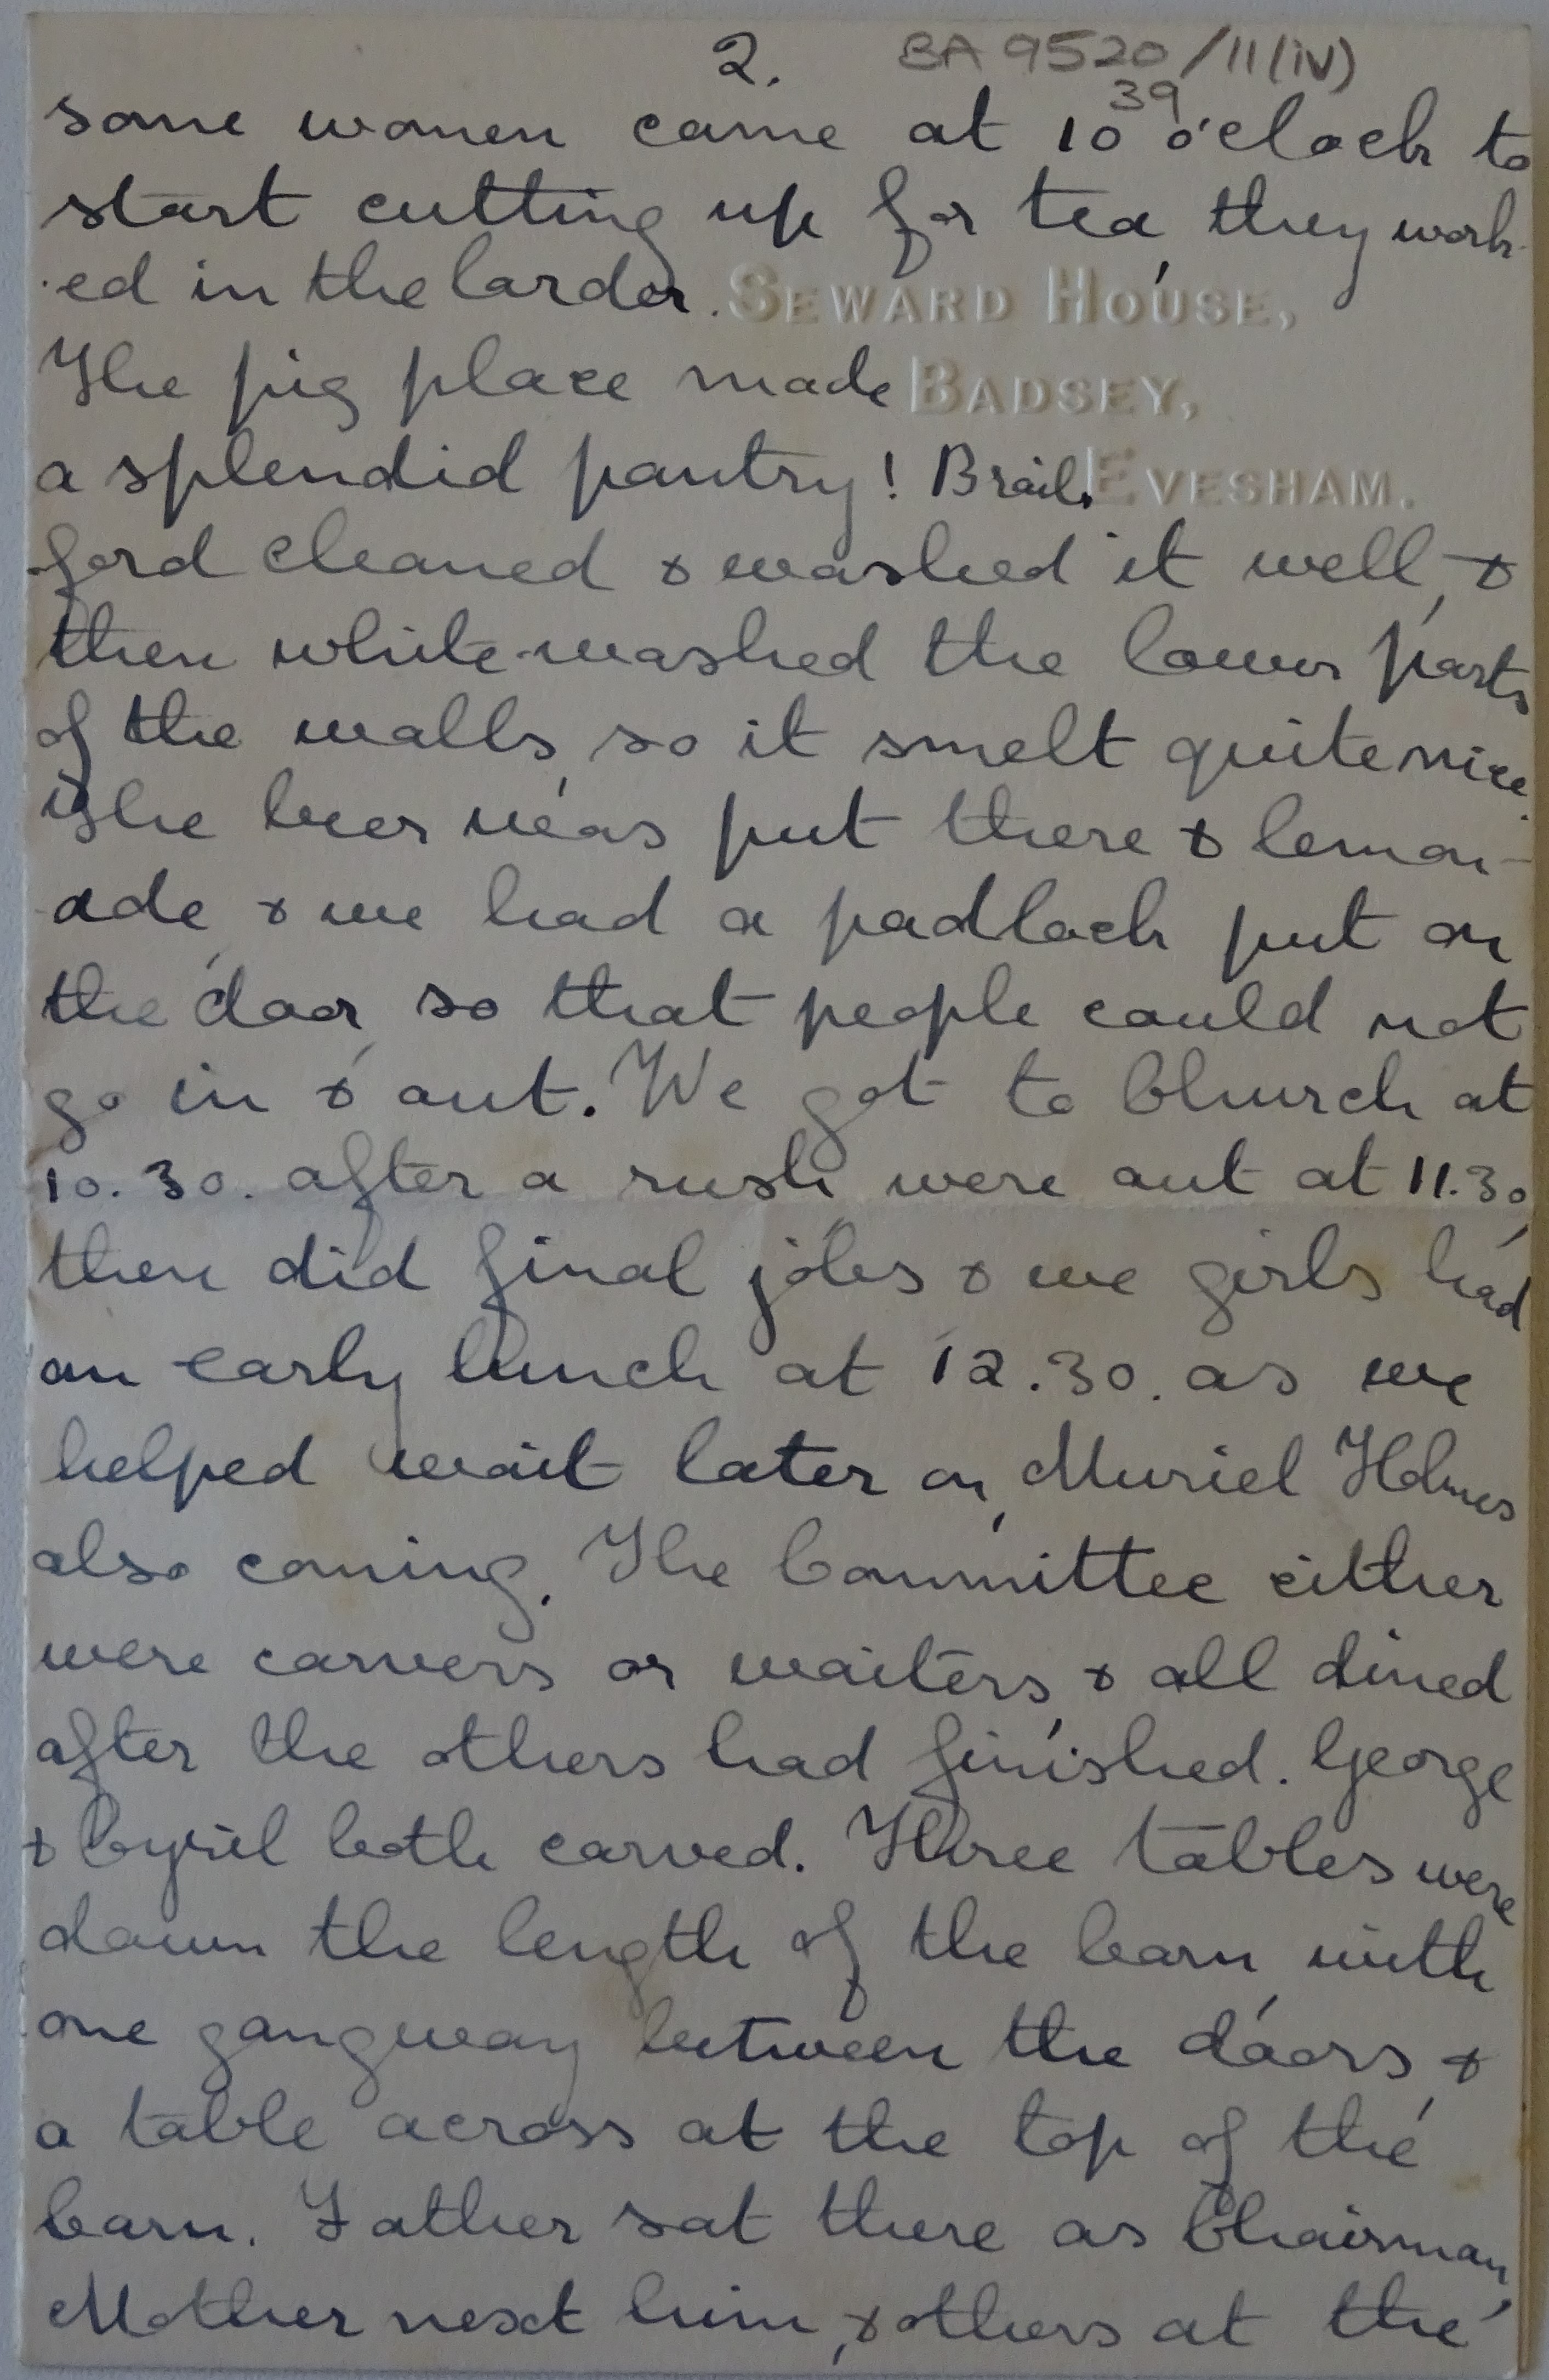 2. BA 9520/11(iv)
39
some women came at 10 o'clock to
start cutting up for tea, they work-
ed in the larder. SEWARD HOUSE,
The pig place made BADSEY,
a splendid pantry! Brails EVESHAM.
ford cleaned & washed it well, &
then white-washed the lower parts
of the walls, so it smelt quite nice.
The beer was put there & lemon-
ade, & we had a padlock put on
the door, so that people could not
go in & out. We got to Church at
10.30. after a rush were out at 11.30,
then did final jobs & we girls had
an early lunch at 12.30. as we
helped wait later on, Muriel Holmes
also coming. The Committee either
were carvers or waiters, & all dined
after the others had finished. George
& Cyril both carved. Three tables were
down the length of the barn, with
one gangway between the doors, &
a table across at the top of the
barn. Father sat there as Chairman,
Mother next him, & others at the